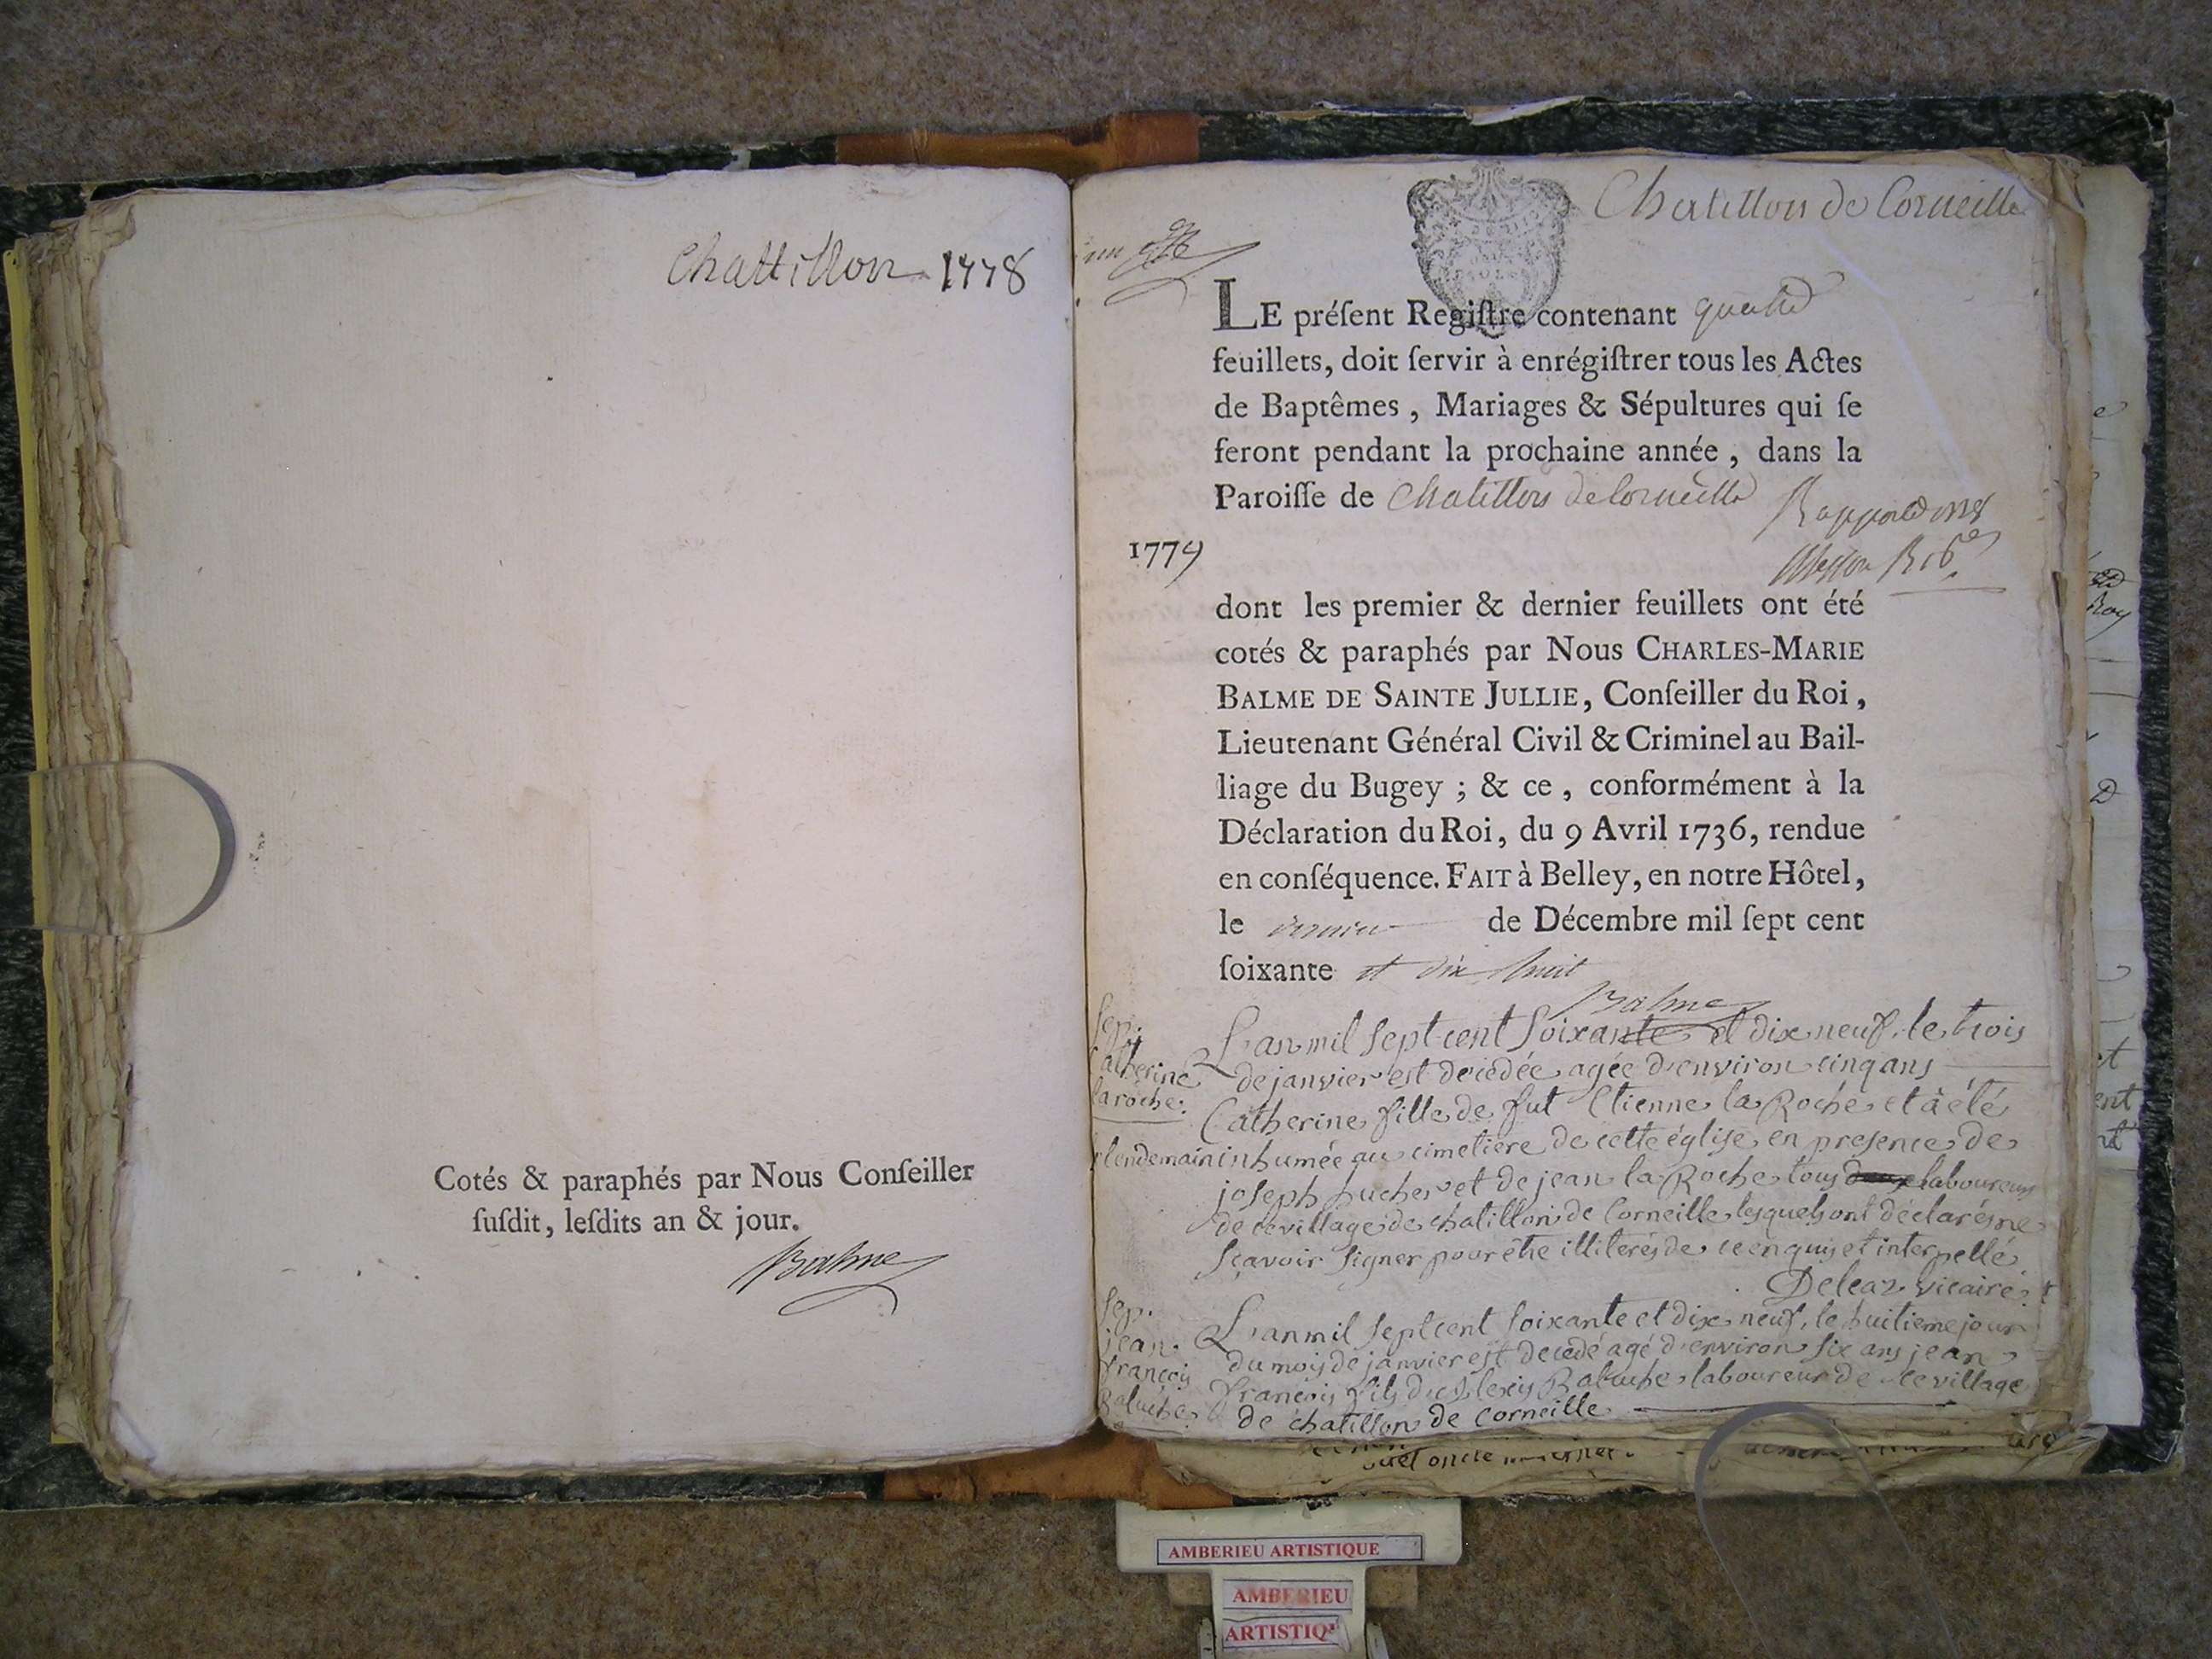 Chattillon 1778
Cotés & paraphés par Nous Conſeiller
ſuſdit, leſdits an & jour.
Balme
Chatillon de Corneille
un
LE préſent Regiſtre contenant quatre
feuillets, doit ſervir à enrégiſtrer tous les Actes
de Baptêmes, Mariages & Sépultures qui ſe
feront pendant la prochaine année, dans la
Paroiſſe de Chatillon de Corneille
1779
dont les premier & dernier feuillets ont été
cotés & paraphés par Nous CHARLES-MARIE
BALME DE SAINTE JULLIE, Conſeiller du Roi,
Lieutenant Général Civil & Criminel au Bail-
liage du Bugey ; & ce, conformément à la
Déclaration du Roi, du 9 Avril 1736, rendue
en conſéquence. FAIT à Belley, en notre Hôtel,
le dernier de Décembre mil ſept cent
ſoixante et dix huit
Balme
Sep.
Catherine
la roche.
L'an mil Sept cent Soixante et dix neuf, le trois
de janvier est decedée agée d'environ cinq ans
Catherine fille de fut Etienne la Roche et à été
lendemain inhumée au cimetiere de cette église en presence de
joseph buche et de jean la Roche tous laboureurs
de ce village de chatillon de Corneille lesquels ont déclarés ne
sçavoir signer pour être illiterés de ce enquis et interpellé
Deleaz vicaire
Sep.
jean
françois
Baluche
L'an mil Sept cent Soixante et dix neuf, le huitieme jour
du mois de janvier est decedé agé d'environ six ans jean
françois fils d'Alexis Baluche laboureur de ce village
de chatillon de Corneille
oncle
AMBERIEU ARTISTIQUE
AMBERIEU
ARTISTIQ